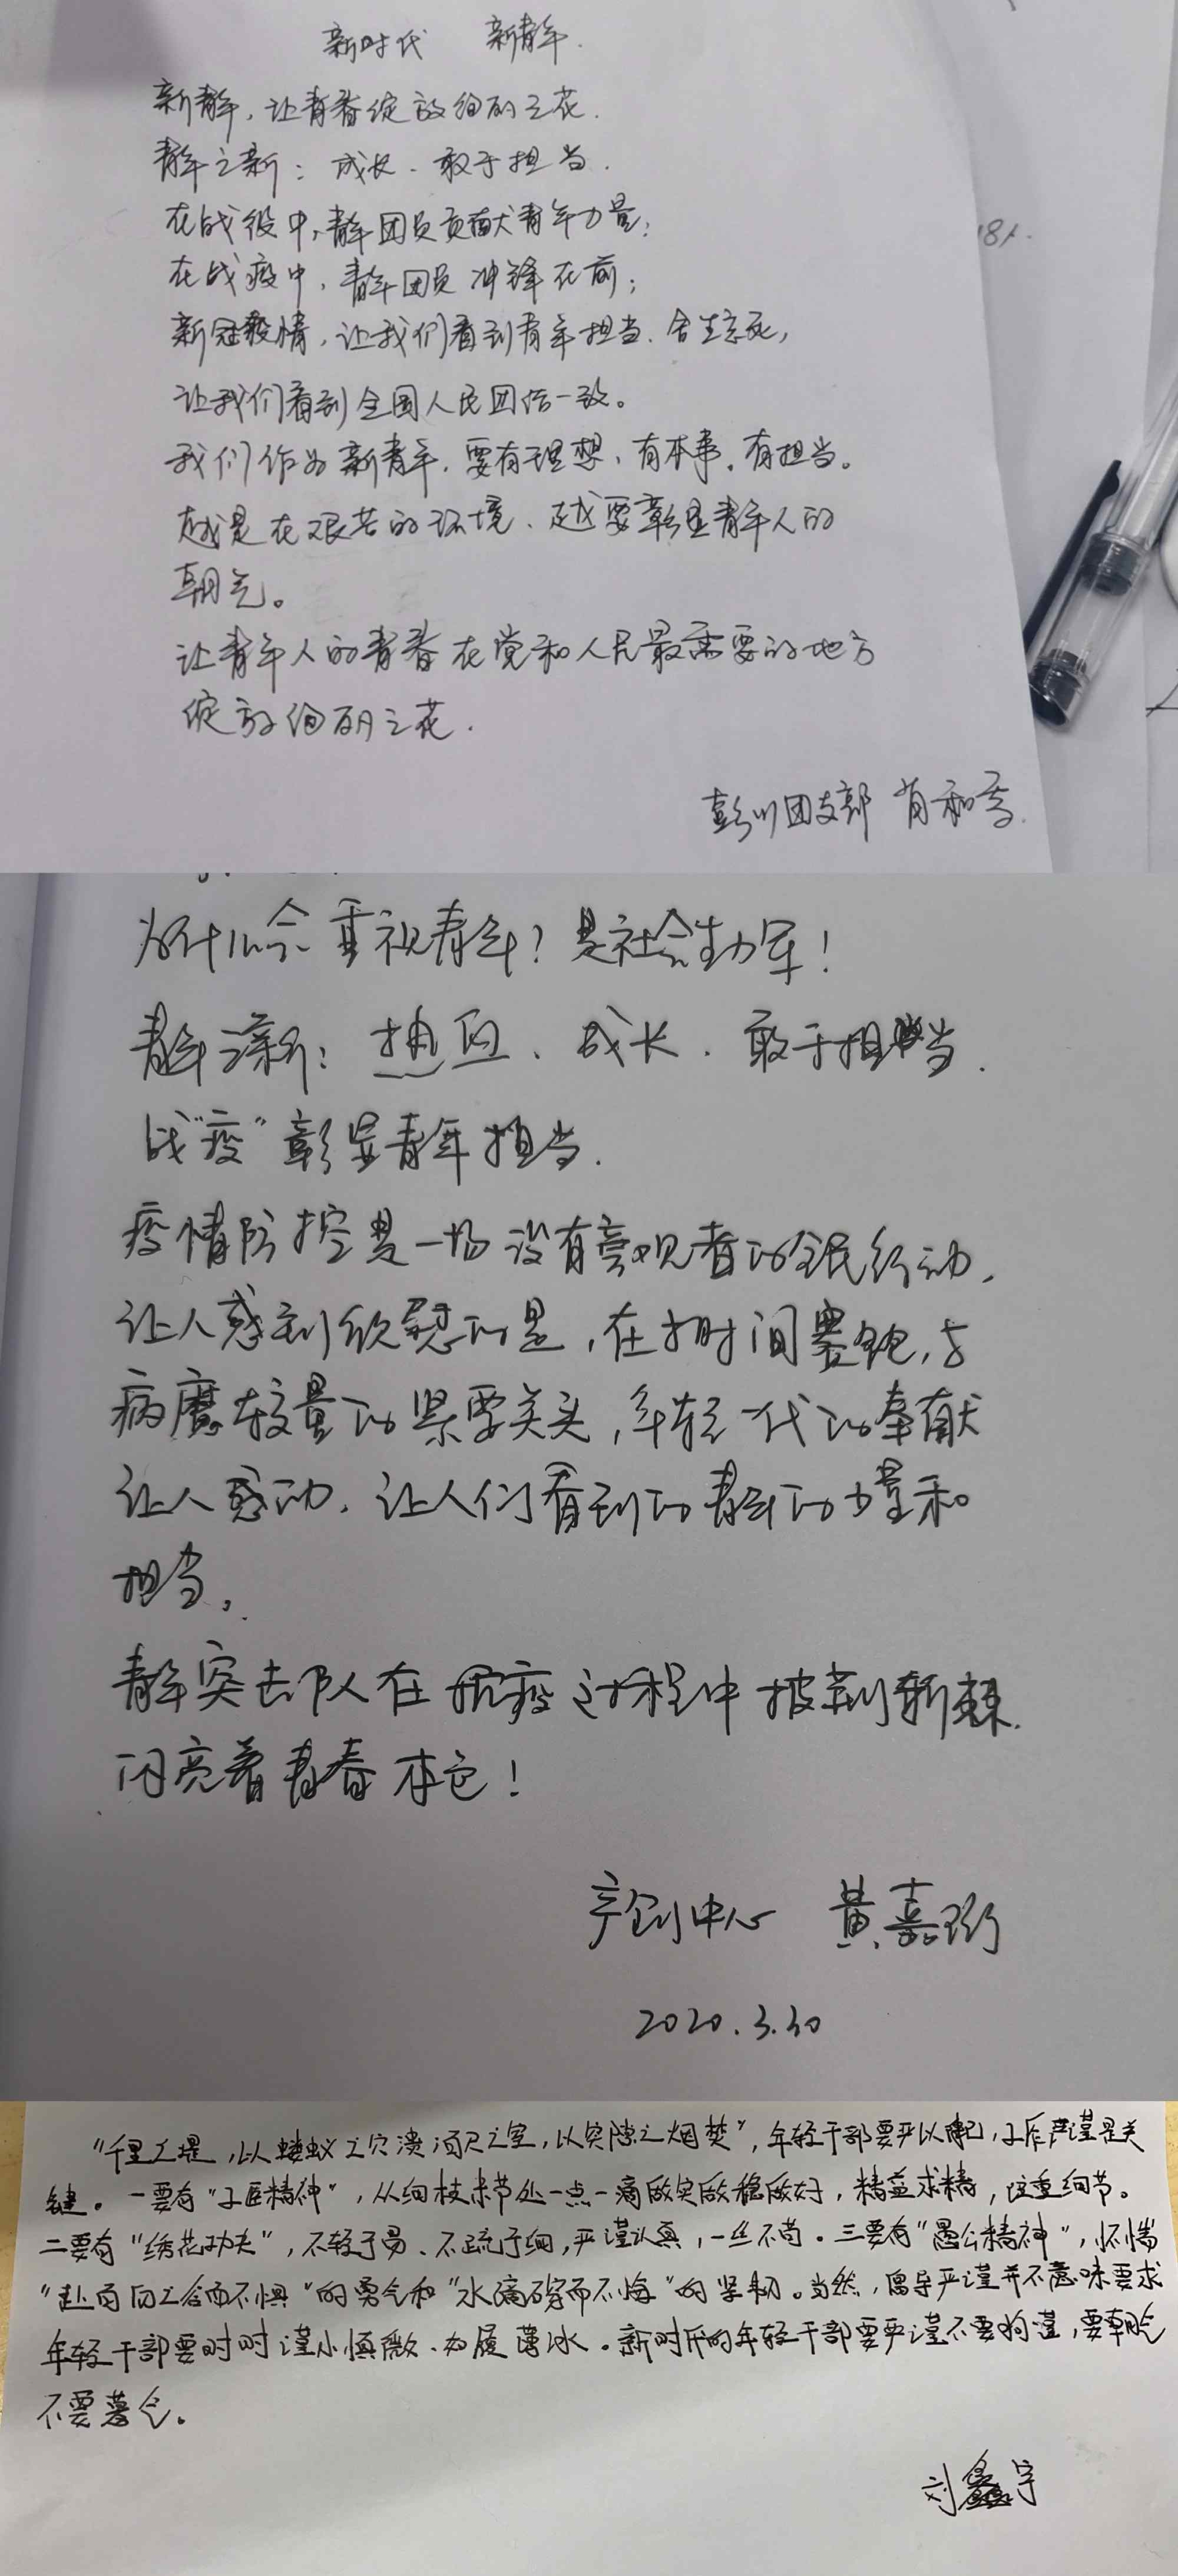 新时代 新青年.
新青年,让青春绽放绚丽之花.
青年之新:成长.敢于担当.
在战役中,青年团员贡献青年力量;
在战疫中,青年团员冲锋在前;
新冠疫情,让我们看到青年担当.舍生忘死,
让我们看到全国人民团结一致。
我们作为新青年.要有理想、有本事.有担当。
越是在艰苦的环境、越要彰显青年人的
朝气。
让青年人的青春在党和人民最需要的地方
绽放绚丽之花.
彭州团支部 肖和
181.
为什么会重视青年?是社会生力军!
青年之新:热血、成长.敢于担当.
战"疫"彰显青年担当.
疫情防控是一场没有旁观者的全民行动.
让人感到欣慰的是,在与时间赛跑,与
病魔较量的紧要关头,年轻一代的奉献
让人感动.让人们看到的青年的力量和
担当。
青年突击队在抗疫过程中披荆斩棘.
闪亮着青春本色!
产创中心 黄嘉珩
2020.3.30
"千里之堤,以蝼蚁之穴溃;百尺之室,以突隙之烟焚",年轻干部要严以律己,工作严谨是关
键。一要有"工匠精神",从细枝末节处一点一滴做实做稳做好,精益求精,注重细节。
二要有"绣花功夫",不轻于易、不疏于细,严谨认真,一丝不苟。三要有"愚公精神",怀惴
"赴百仞之谷而不惧"的勇气和"水滴石穿而不悔"的坚韧。当然,倡导严谨并不意味要求
年轻干部要时时谨小慎微、如履薄冰。新时代的年轻干部要严谨不要拘谨,要朝气
不要暮气。
刘鑫宇